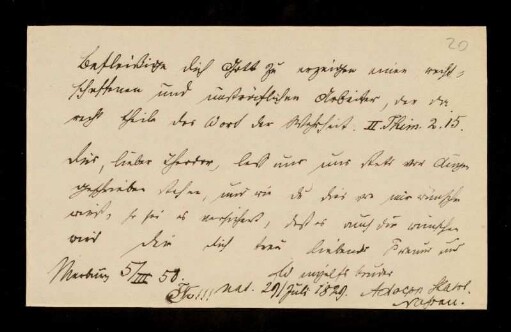 20
Befleißige dich Gott zu erzeigen einen recht-
schaffenen und unsträflichen Arbeiter, der da
recht theile das Wort der Wahrheit. II Thim. 2.15.
Dies, lieber Theodor, laß uns uns stets vor Augen
geschrieben stehen, und wie du dies von mir wünschen
wirst, so sei es versichert, daß es auch dir wünschen
wird dein dich treu liebender Freund und
Marburg 5/III 50.
nat. 29/Juli 1829. Adolph